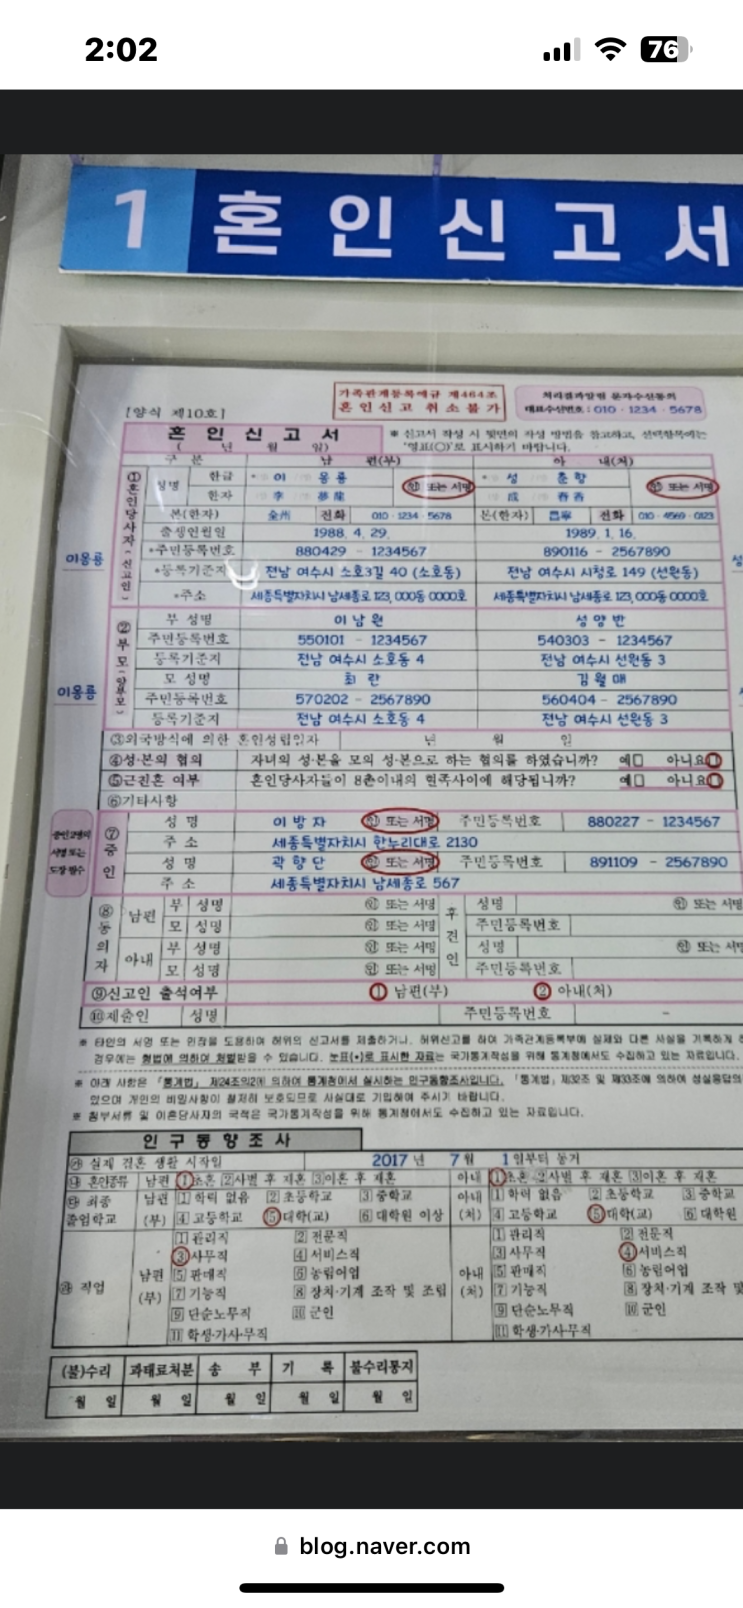 2:02
76
1 혼인신고서
가족관계등록예규 제464조
혼인신고 취소불가
처리결과알림 문자수신동의
대표수신번호 : 010 - 1234 - 5678
[양식 제10호]
혼인신고서
( 년 월 일)
※ 신고서 작성 시 뒷면의 작성 방법을 참고하고, 선택항목에는
'영표(○)'로 표시하기 바랍니다.
구 분 남 편(부) 아 내(처)
①혼인당사자(신고인)
성명 한글 이 몽룡 ㊞ 또는 서명 성 춘향 ㊞ 또는 서명
한자 李 夢龍 成 春香
본(한자) 全州 전화 010 - 1234 - 5678 본(한자) 昌寧 전화 010 - 4569 - 0123
출생연월일 1988. 4. 29. 1989. 1. 16.
*주민등록번호 880429 - 1234567 890116 - 2567890
이몽룡
*등록기준지 전남 여수시 소호3길 40 (소호동) 전남 여수시 시청로 149 (선원동)
*주소 세종특별자치시 남세종로 123, 000동 0000호 세종특별자치시 남세종로 123, 000동 0000호
②부모(양부모)
부 성명 이남원 성양반
주민등록번호 550101 - 1234567 540303 - 1234567
등록기준지 전남 여수시 소호동 4 전남 여수시 선원동 3
모 성명 최 란 김월매
이몽룡
주민등록번호 570202 - 2567890 560404 - 2567890
등록기준지 전남 여수시 소호동 4 전남 여수시 선원동 3
③외국방식에 의한 혼인성립일자 년 월 일
④성·본의 협의 자녀의 성·본을 모의 성·본으로 하는 협의를 하였습니까? 예□ 아니요□
⑤근친혼 여부 혼인당사자들이 8촌이내의 혈족사이에 해당됩니까? 예□ 아니요□
⑥기타사항
증인2명의
서명 또는
도장 필수
⑦증인
성 명 이방자 ㊞ 또는 서명 주민등록번호 880227 - 1234567
주 소 세종특별자치시 한누리대로 2130
성 명 곽향단 ㊞ 또는 서명 주민등록번호 891109 - 2567890
주 소 세종특별자치시 남세종로 567
⑧동의자
남편 부 성명 ㊞ 또는 서명 후견인 성명 ㊞ 또는 서명
모 성명 ㊞ 또는 서명 주민등록번호
아내 부 성명 ㊞ 또는 서명 성명 ㊞ 또는 서명
모 성명 ㊞ 또는 서명 주민등록번호
⑨신고인 출석여부 1 남편(부) 2 아내(처)
⑩제출인 성명 주민등록번호 -
※ 타인의 서명 또는 인장을 도용하여 허위의 신고서를 제출하거나, 허위신고를 하여 가족관계등록부에 실제와 다른 사실을 기록하게 하
경우에는 형법에 의하여 처벌받을 수 있습니다. 눈표(*)로 표시한 자료는 국가통계작성을 위해 통계청에서도 수집하고 있는 자료입니다.
※ 아래 사항은 「통계법」 제24조의2에 의하여 통계청에서 실시하는 인구동향조사입니다. 「통계법」 제32조 및 제33조에 의하여 성실응답의
있으며 개인의 비밀사항이 철저히 보호되므로 사실대로 기입하여 주시기 바랍니다.
※ 첨부서류 및 이혼당사자의 국적은 국가통계작성을 위해 통계청에서도 수집하고 있는 자료입니다.
인구동향조사
㉮ 실제 결혼 생활 시작일 2017 년 7 월 1 일부터 동거
㉯ 혼인종류 남편 1초혼 2사별 후 재혼 3이혼 후 재혼 아내 1초혼 2사별 후 재혼 3이혼 후 재혼
㉰ 최종 졸업학교
남편(부) 1학력 없음 2초등학교 3중학교 아내(처) 1학력 없음 2초등학교 3중학교
4고등학교 5대학(교) 6대학원 이상 4고등학교 5대학(교) 6대학원
㉱ 직업
남편(부) 아내(처)
1관리직 2전문직 1관리직 2전문직
3사무직 4서비스직 3사무직 4서비스직
5판매직 6농림어업 5판매직 6농림어업
7기능직 8장치·기계 조작 및 조립 7기능직 8장치·기계 조작 및
9단순노무직 10군인 9단순노무직 10군인
11학생·가사·무직 11학생·가사·무직
(불)수리 과태료처분 송 부 기 록 불수리통지
월 일 월 일 월 일 월 일 월 일
blog.naver.com